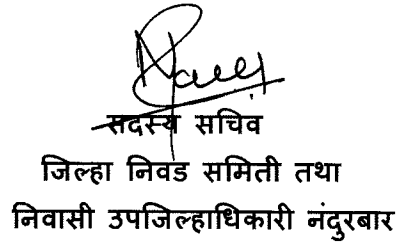 सदस्य सचिव
जिल्हा निवड समिती तथा
निवासी उपजिल्हाधिकारी नंदुरबार